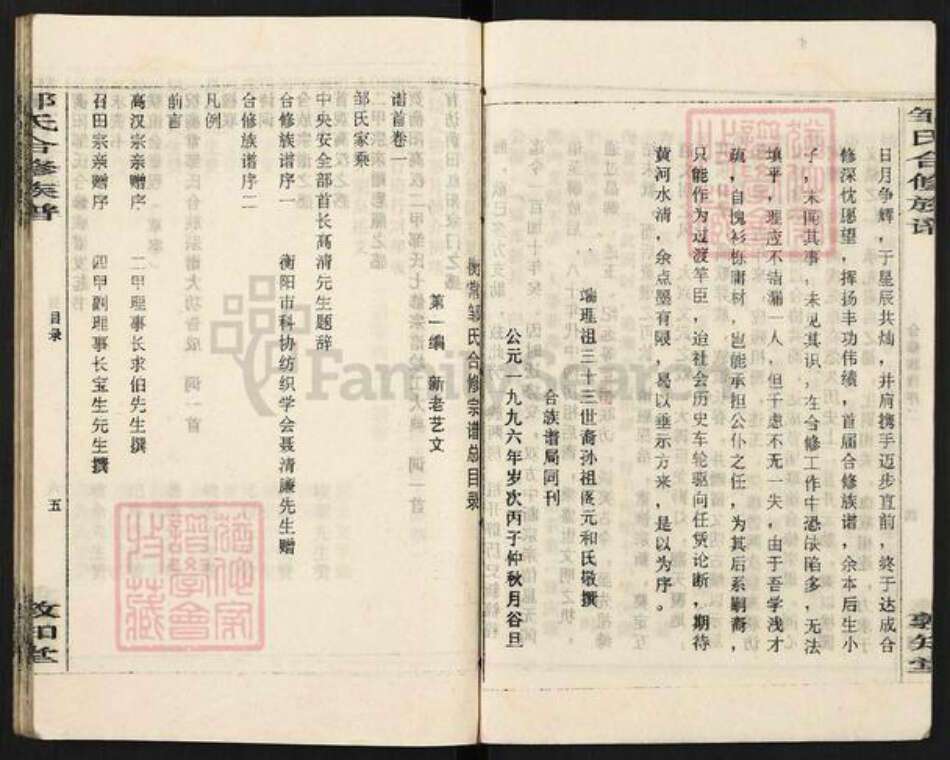 邹氏合修族谱
日月争辉，于星辰共灿，并肩携手迈步直前，终于达成合
修深忱愿望，挥扬丰功伟绩，首届合修族谱，余本后生小
子，未闻其事，未见其识，在合修工作中恐缺陷多，无法
填平，理应不洁漏一人，但千虑不无一失，由于吾学浅才
疏，自愧衫栎庸材，岂能承担公仆之任，为其后系嗣裔，
只能作为过渡竿臣，迨社会历史车轮驱向任赁论断，期待
黄河水清，余点墨有限，曷以垂示方来，是以为序。
瑞琟祖三十三世裔孙祖阁元和氏敬撰
合族谱局同刊
公元一九九六年岁次丙子仲秋月谷旦
衡常邹氏合修宗谱总目录
第一编 新老艺文
谱首卷一
邹氏家乘
中央安全部首长高清先生题辞
合修族谱序一 衡阳市科协纺织学会聂清廉先生赠
合修族谱序二
凡例
前言
高汉宗亲赠序 二甲理事长求伯先生撰
召田宗亲赠序 四甲副理事长宝生先生撰
邹氏合修族谱
目录
五
敦和堂
FamilySearch